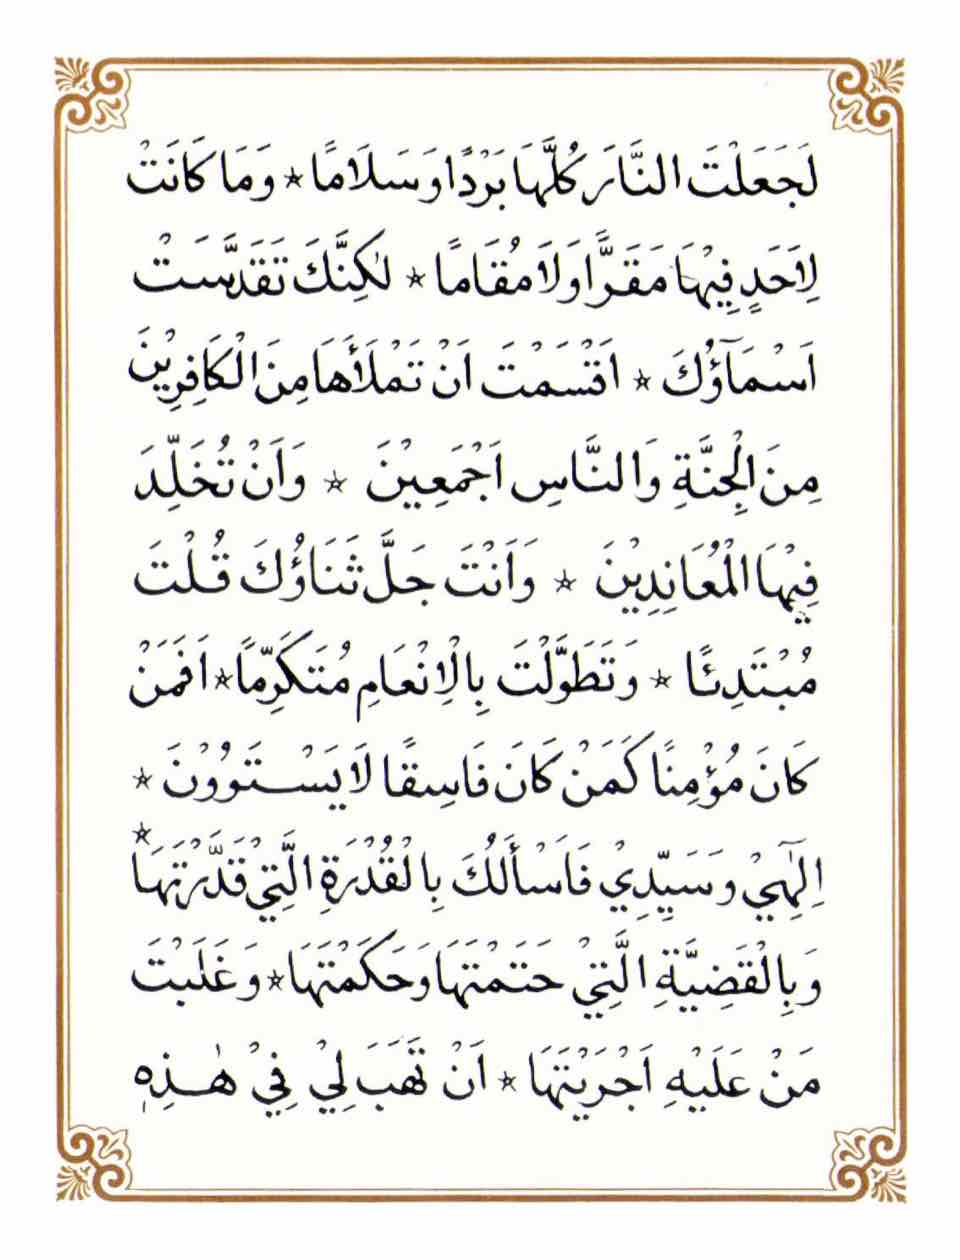 لَجَعَلْتَ النَّارَ كُلَّهَا بَرْدًا وَسَلَامًا ٭ وَمَا كَانَتْ
لِاَحَدٍ فِيْهَا مَقَرًّا وَلَا مُقَامًا ٭ لٰكِنَّكَ تَقَدَّسَتْ
اَسْمَآؤُكَ ٭ اَقْسَمْتَ اَنْ تَمْلَأَهَا مِنَ الْكَافِرِيْنَ
مِنَ الْجِنَّةِ وَالنَّاسِ اَجْمَعِيْنَ ٭ وَاَنْ تُخَلِّدَ
فِيْهَا الْمُعَانِدِيْنَ ٭ وَاَنْتَ جَلَّ ثَنَاؤُكَ قُلْتَ
مُبْتَدِئًا ٭ وَتَطَوَّلْتَ بِالْاِنْعَامِ مُتَكَرِّمًا ٭ اَفَمَنْ
كَانَ مُؤْمِنًا كَمَنْ كَانَ فَاسِقًا لَا يَسْتَوُوْنَ ٭
اِلٰهِيْ وَسَيِّدِيْ فَاَسْأَلُكَ بِالْقُدْرَةِ الَّتِيْ قَدَّرْتَهَا ٭
وَبِالْقَضِيَّةِ الَّتِيْ حَتَمْتَهَا وَحَكَمْتَهَا ٭ وَغَلَبْتَ
مَنْ عَلَيْهِ اَجْرَيْتَهَا ٭ اَنْ تَهَبَ لِيْ فِيْ هٰذِهِ